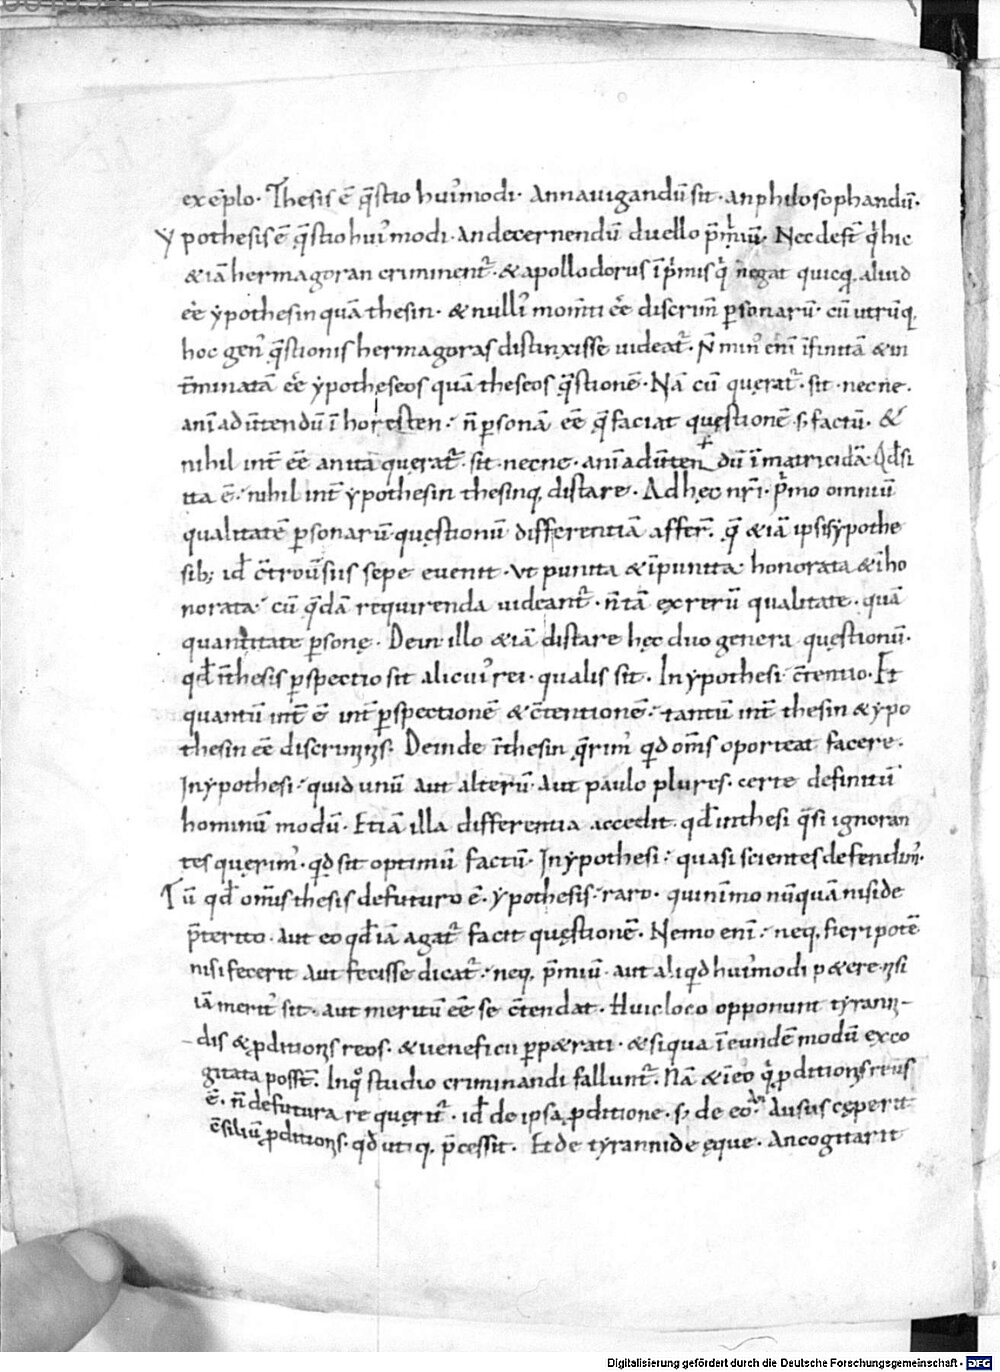 exēplo. Thesis ē q̄stio hui᾽modi. An nauigandū sit. an philosophandū.
Ypothesis ē q̄stio hui᾽modi. an decernendū duello p̄miū. Nec deſt q̇ hic
& iā hermagoran criminent᷑. & apollodorus ī p̄mis q̇ negat quicq̄. aliud
eē ypothesin quā thesin. & nulli᾽ momti eē discrim̄ ꝑsonarū. cū utrūq;
hoc gen᾽ q̄stionis hermagoras distinxisse uideat᷑. N̄ min᾽ eni īfinitā & in
t̄minatā eē ypotheseos quā theseos q̄stionē. Nā cū quęrat᷑. sit. necne.
animaduertendū ī horesten. n̄ ꝑsonā eē quę faciat quęstionē. s; factū. &
nihil int̄ eē an ita quęrat᷑. sit. necne. animaduerten dū ī matricidā. Qđ si
ita ē. nihil int̄ ypothesin thesinq; distare. Ad hęc nr̄i. p̄mo omniū
qualitatē ꝑsonarū. quęstionū differentiā afferr̄. q̄ & iā ipsis ypothe
sib; id c̄trouersiis sepe euenit. ut punita & īpunita. honorata & īho
norata. cū q̄dā requirenda uideant᷑. n̄ tā ex rerū qualitate. quā
quantitate ꝑsonę. Dein illo & iā distare hęc duo genera quęstionū.
qđ ī thesi ꝑspectio sit alicui᾽ rei. qualis sit. In ypothesi c̄tentio. Et
quantū int̄ ē int̄ ꝑspectionē & c̄tentionē. tantū int̄ thesin & ypo
thesin eē discriminis. Deinde ī thesin q̄rim᾽ qd om̄s oporteat facere.
In ypothesi. quid unū aut alterū. aut paulo plures. certe definitū
hominū modū. Etiā illa differentia accedit. qđ in thesi q̄si ignoran
tes querim᾽. qd sit optimū factū. In ypothesi. quasi scientes defendim᾽.
Tū qđ om̄is thesis de futuro ē. ypothesis. raro. quinimo nūquā nisi de
p̄terito. aut eo qđ iā agat᷑ facit quęstionē. Nemo eni. neq; fieri potē
nisi fecerit aut fecisse dicat᷑. neq; p̄miū aut aliqd hui᾽modi p&ere. nisi
iā merit᾽ sit. aut meritū eē se c̄tendat. Huic loco opponunt tyranni-
dis & ꝓditionis reos. & ueneficii ꝑp&rati. & siqua ī eundē modū exco
gitata possт̄. In quo studio criminandi fallunt᷑. Nā & ī eo q̇ ꝓditionis reus
ē. n̄ de futura re querit᷑. id de ipsa ꝓditione. s; de eo. an ausus cęperit
cōsiliū ꝓditionis. qđ utiq; p̄cessit. Et de tyrannide ęque. An cogitarit
Digitalisierung gefördert durch die Deutsche Forschungsgemeinschaft - DFG